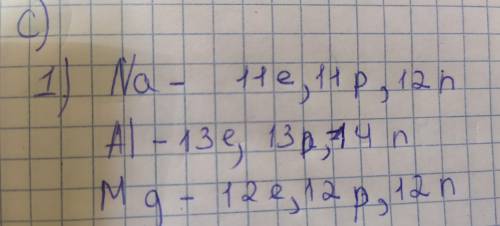 C)
1) Na - 11e, 11p, 12n
Al - 13e, 13p, 14n
Mg - 12e, 12p, 12n